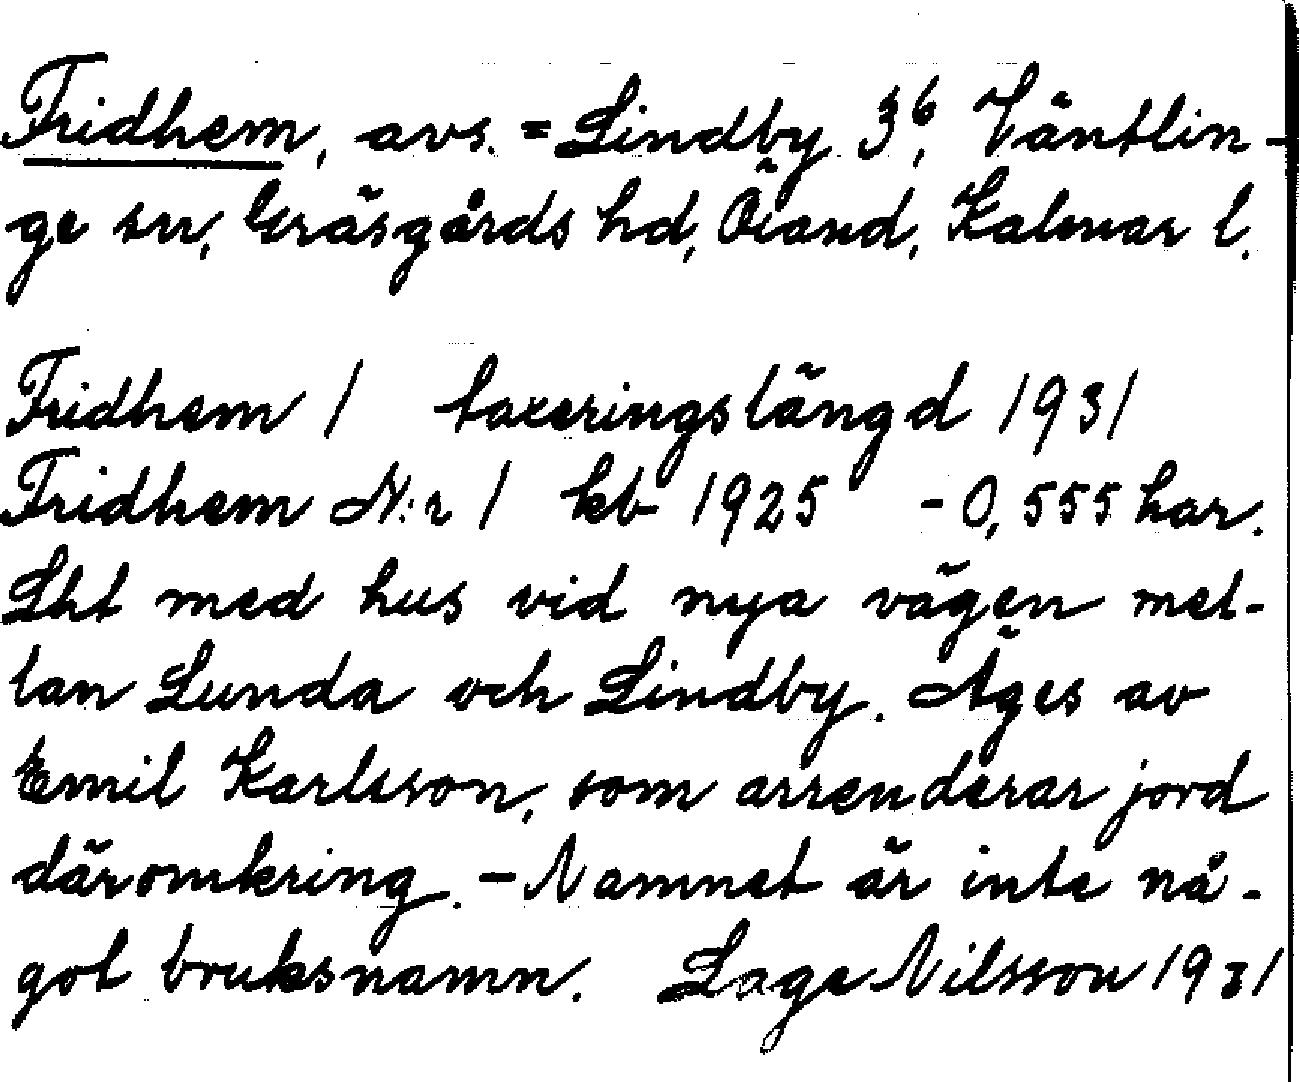 Fridhem, avs. = Lindby 3⁶, Väntlin-
ge sn, Gräsgårds hd, Öland, Kalmar l.
Fridhem 1 taxeringslängd 1931
Fridhem N:r 1 kb 1925 - 0,555 har.
Lht med hus vid nya vägen mel-
lan Lunda och Lindby. Äges av
Emil Karlsson, som arrenderar jord
däromkring. - Namnet är inte nå-
got bruksnamn. Lage Nilsson 1931